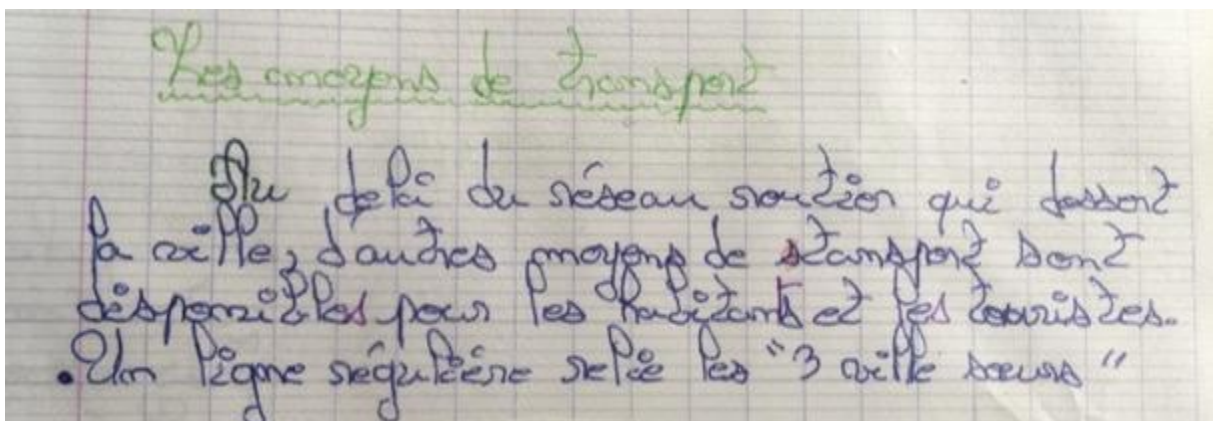 Les moyens de transport
Au delà du réseau routier qui dessert
la ville, d'autres moyens de stansport sont
disponibles pour les habitants et les touristes.
. Un ligne régulière relie les "3 ville sœurs"